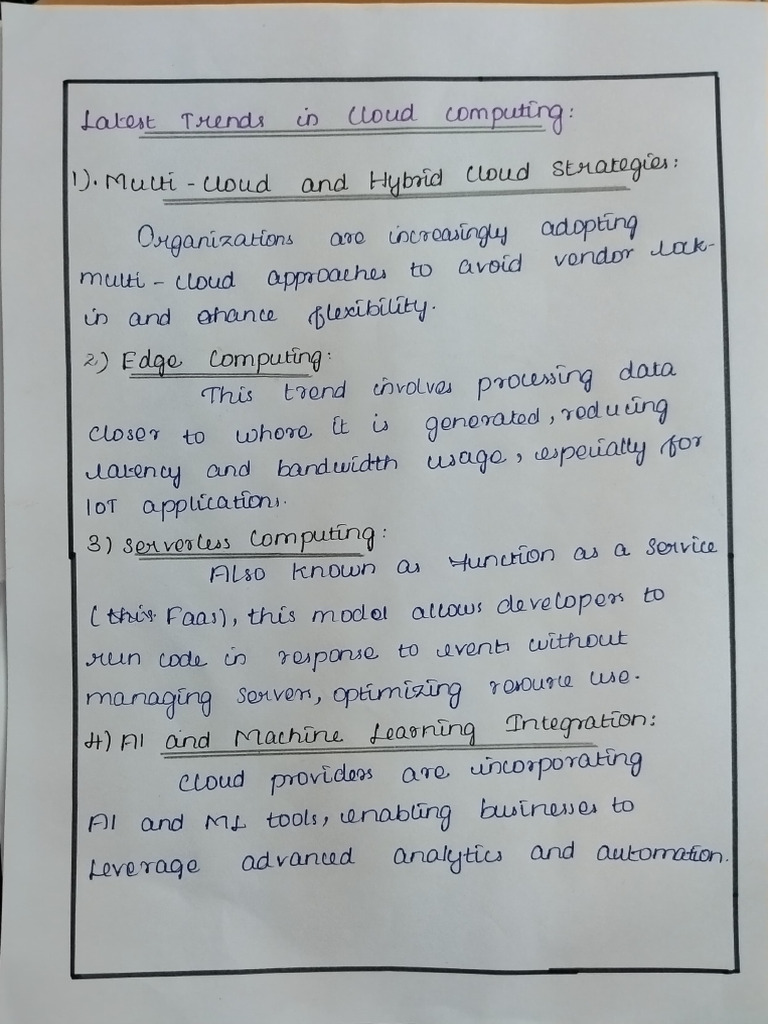 Latest Trends in Cloud Computing:
1). Multi-cloud and Hybrid Cloud Strategies:
Organizations are increasingly adopting
multi-cloud approaches to avoid vendor lock-
in and ehance flexibility.
2) Edge Computing:
This trend involves processing data
closer to where it is generated, reducing
latency and bandwidth usage, especially for
IoT applications.
3) Serverless Computing:
Also known as function as a service
(this Faas), this model allows developers to
run code in response to events without
managing servers, optimizing resource use.
4) AI and Machine Learning Integration:
Cloud providers are incorporating
AI and ML tools, enabling businesses to
leverage advanced analytics and automation.